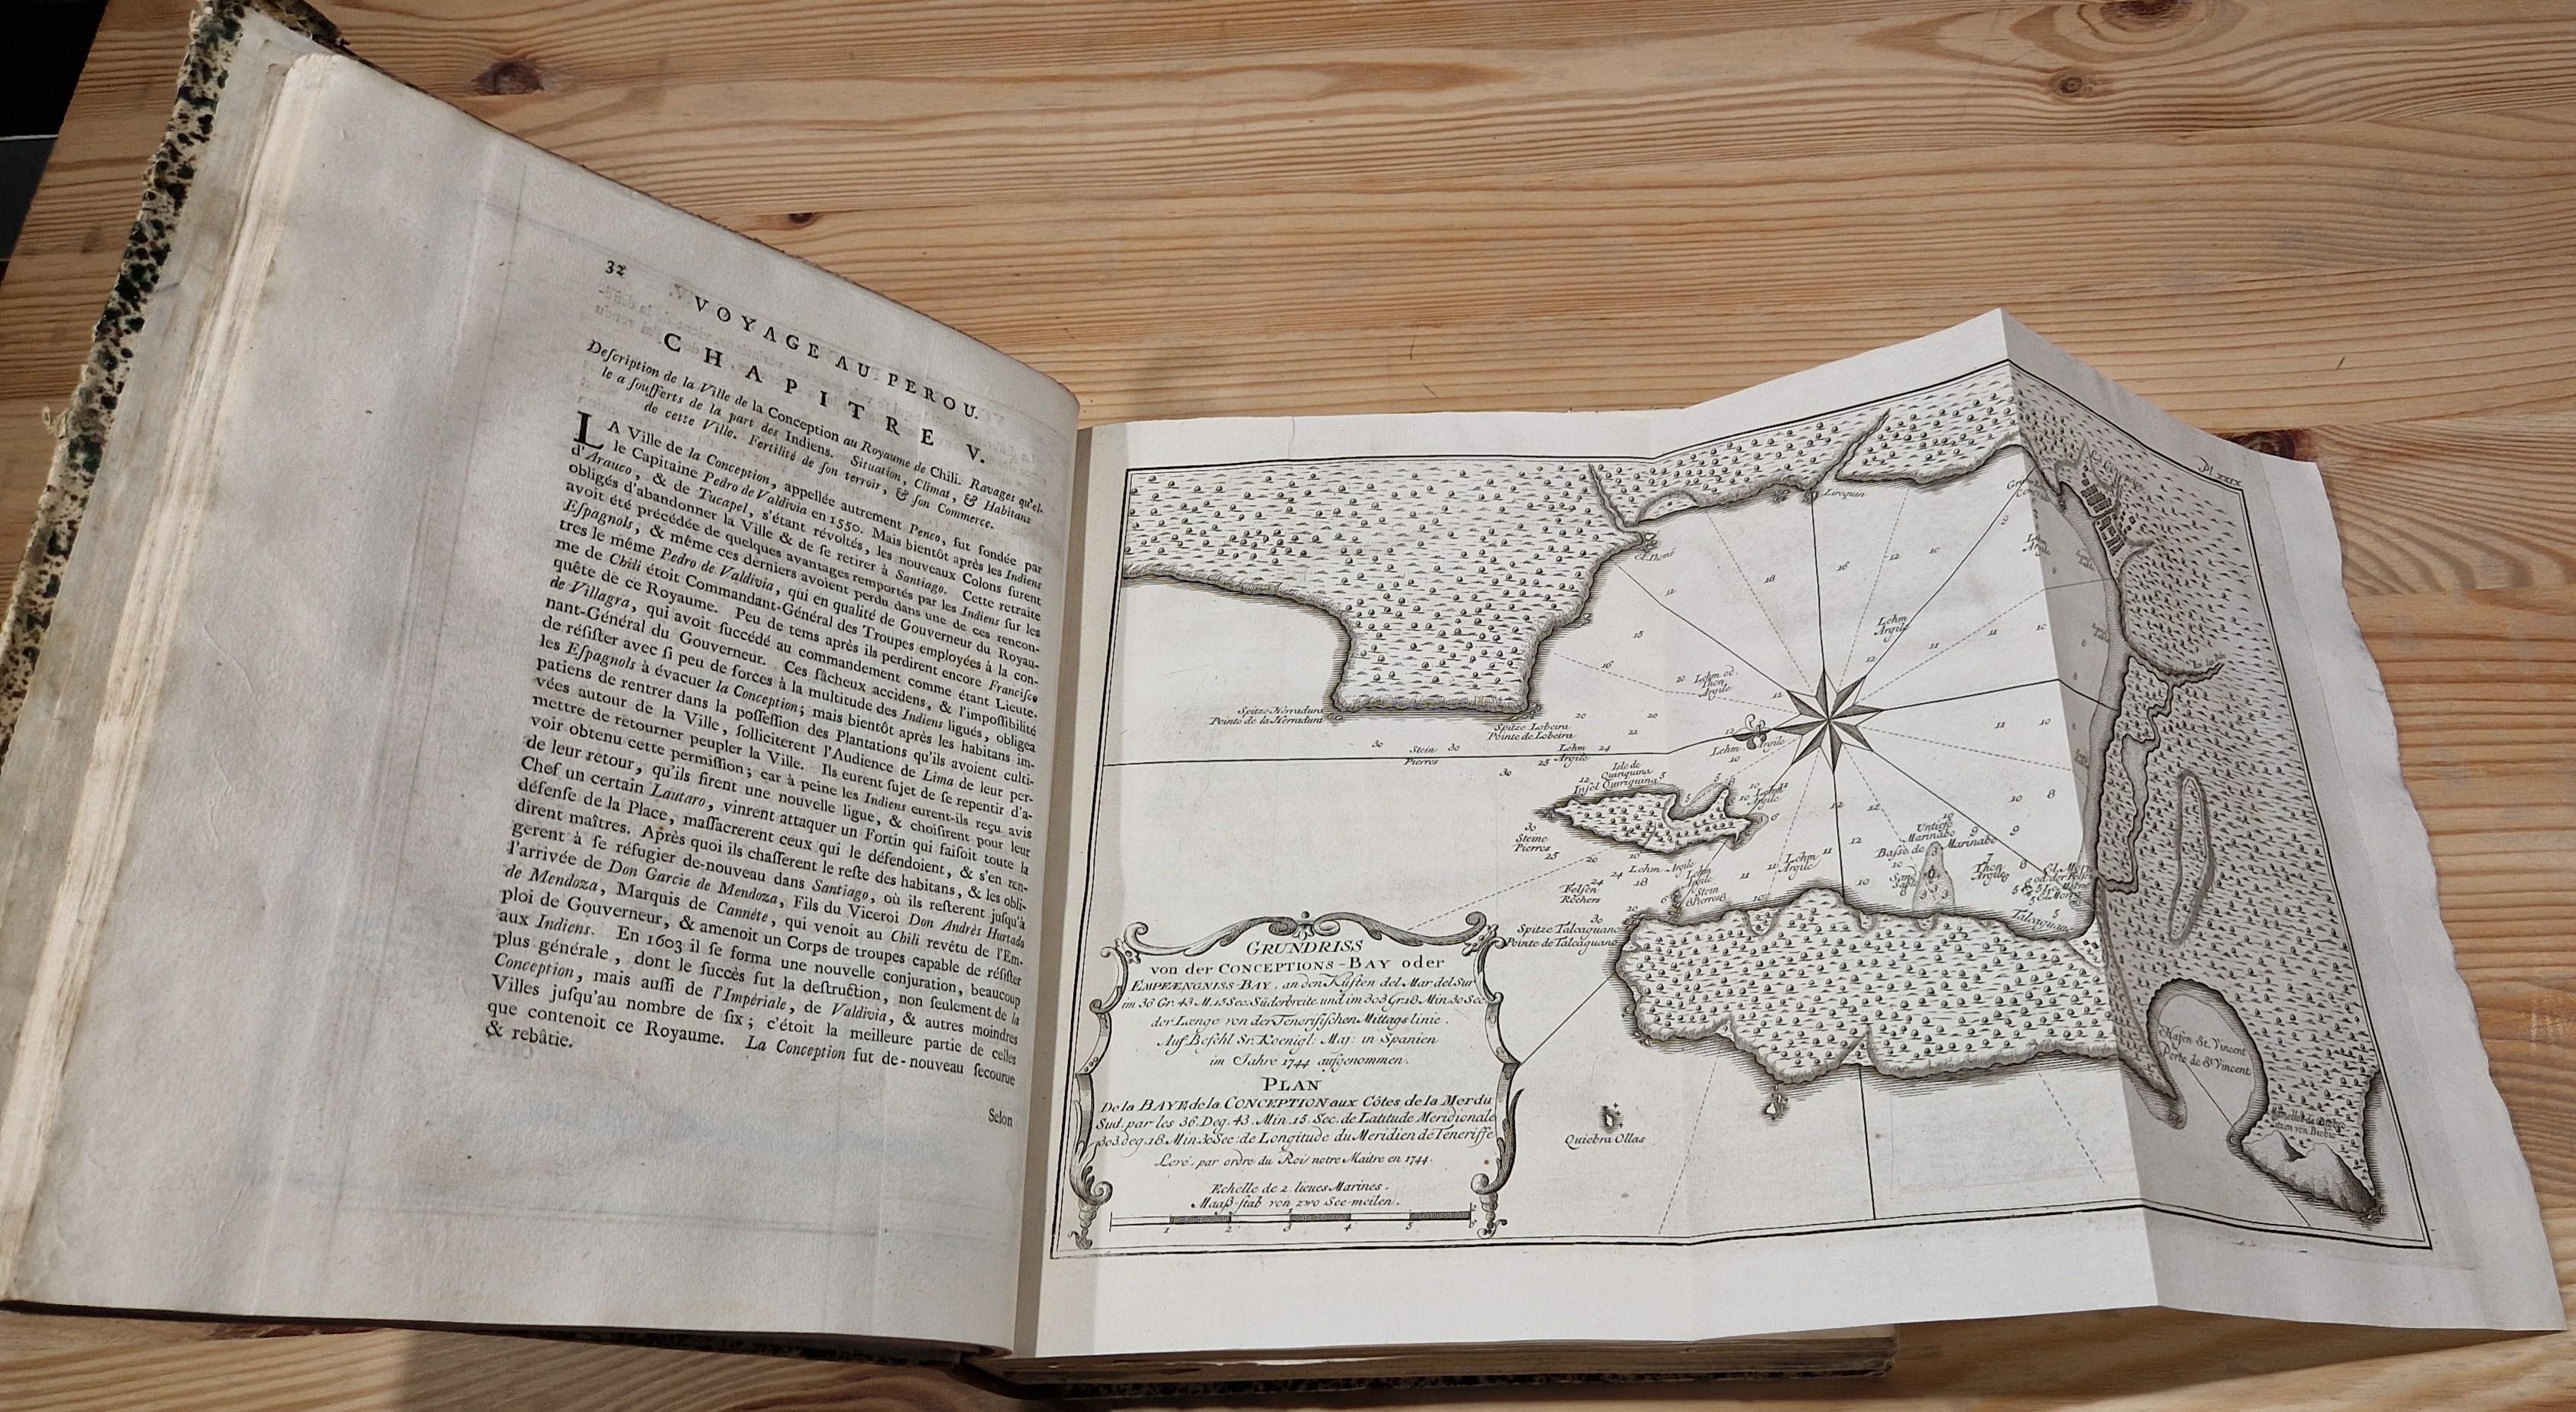 32
VOYAGE AU PEROU.
CHAPITRE V.
Deſcription de la Ville de la Conception au Royaume de Chili. Ravages qu'el-
le a ſoufferts de la part des Indiens. Situation, Climat, & Habitans
de cette Ville. Fertilité de ſon terroir, & ſon Commerce.
LA Ville de la Conception, appellée autrement Penco, fut fondée par
le Capitaine Pedro de Valdivia en 1550. Mais bientôt après les Indiens
d'Arauco, & de Tucapel, s'étant révoltés, les nouveaux Colons furent
obligés d'abandonner la Ville & de ſe retirer à Santiago. Cette retraite
avoit été précédée de quelques avantages remportés par les Indiens ſur les
Eſpagnols, & même ces derniers avoient perdu dans une de ces rencon-
tres le même Pedro de Valdivia, qui en qualité de Gouverneur du Royau-
me de Chili étoit Commandant-Général des Troupes employées à la con-
quête de ce Royaume. Peu de tems après ils perdirent encore Franciſco
de Villagra, qui avoit ſuccédé au commandement comme étant Lieute-
nant-Général du Gouverneur. Ces fâcheux accidens, & l'impoſſibilité
de réſiſter avec ſi peu de forces à la multitude des Indiens ligués, obligea
les Eſpagnols à évacuer la Conception; mais bientôt après les habitans im-
patiens de rentrer dans la poſſeſſion des Plantations qu'ils avoient culti-
vées autour de la Ville, ſolliciterent l'Audience de Lima de leur per-
mettre de retourner peupler la Ville. Ils eurent ſujet de ſe repentir d'a-
voir obtenu cette permiſſion; car à peine les Indiens eurent-ils reçu avis
de leur retour, qu'ils firent une nouvelle ligue, & choiſirent pour leur
Chef un certain Lautaro, vinrent attaquer un Fortin qui faiſoit toute la
défenſe de la Place, maſſacrerent ceux qui le défendoient, & s'en ren-
dirent maîtres. Après quoi ils chaſſerent le reſte des habitans, & les obli-
gerent à ſe réfugier de-nouveau dans Santiago, où ils reſterent juſqu'à
l'arrivée de Don Garcie de Mendoza, Fils du Viceroi Don Andrès Hurtado
de Mendoza, Marquis de Cannéte, qui venoit au Chili revêtu de l'Em-
ploi de Gouverneur, & amenoit un Corps de troupes capable de réſiſter
aux Indiens. En 1603 il ſe forma une nouvelle conjuration, beaucoup
plus générale, dont le ſuccès fut la deſtruction, non ſeulement de la
Conception, mais auſſi de l'Impériale, de Valdivia, & autres moindres
Villes juſqu'au nombre de ſix; c'étoit la meilleure partie de celles
que contenoit ce Royaume. La Conception fut de-nouveau ſecourue
& rebâtie.
Selon
Pl. XXIX
Lirequin
Lehm
Argile
12
18
16
12
15
16
20
Lehm od.
Thon
Argile
12
Spitze Herradura
Pointe de la Herradura
Spitze Lobeira
Pointe de Lobeira
20
20
22
30
Stein
Pierres
30
25
Lehm
Argile
24
Lehm
Argile
30
Isle de
Quiriquina
Insel Quiriquina
30
Steine
Pierres
25
20
24
Felsen
Rochers
24
18
Lehm Argile
Lehm
Argile
Stein
Pierres
Lehm
Argile
Untiefe
Marinabo
Basse de Marinabo
Thon
Argile
Talcaguana
Spitze Talcaguana
Pointe de Talcaguana
Quiebra Ollas
Hafen St. Vincent
Porte de St. Vincent
GRUNDRISS
von der CONCEPTIONS-BAY oder
EMPFÆNGNISS-BAY, an den Küſten del Mar del Sur
im 36 Gr. 43 M. 15 Sec. Süderbreite und im 303 Gr. 18 Min. 30 Sec.
der Længe von der Teneriſiſchen Mittagslinie.
Auf Befehl Sr. Koenigl: Maj: in Spanien
im Jahre 1744 aufgenommen.
PLAN
De la BAYE de la CONCEPTION aux Côtes de la Mer du
Sud, par les 36 Deg. 43. Min. 15 Sec. de Latitude Meridionale
303 deg. 18 Min. 30 Sec: de Longitude du Meridien de Teneriffe
Levé, par ordre du Roi notre Maitre en 1744.
Echelle de 2 lieues Marines.
Maaß-ſtab von zwo See-meilen.
1 2 3 4 5 6